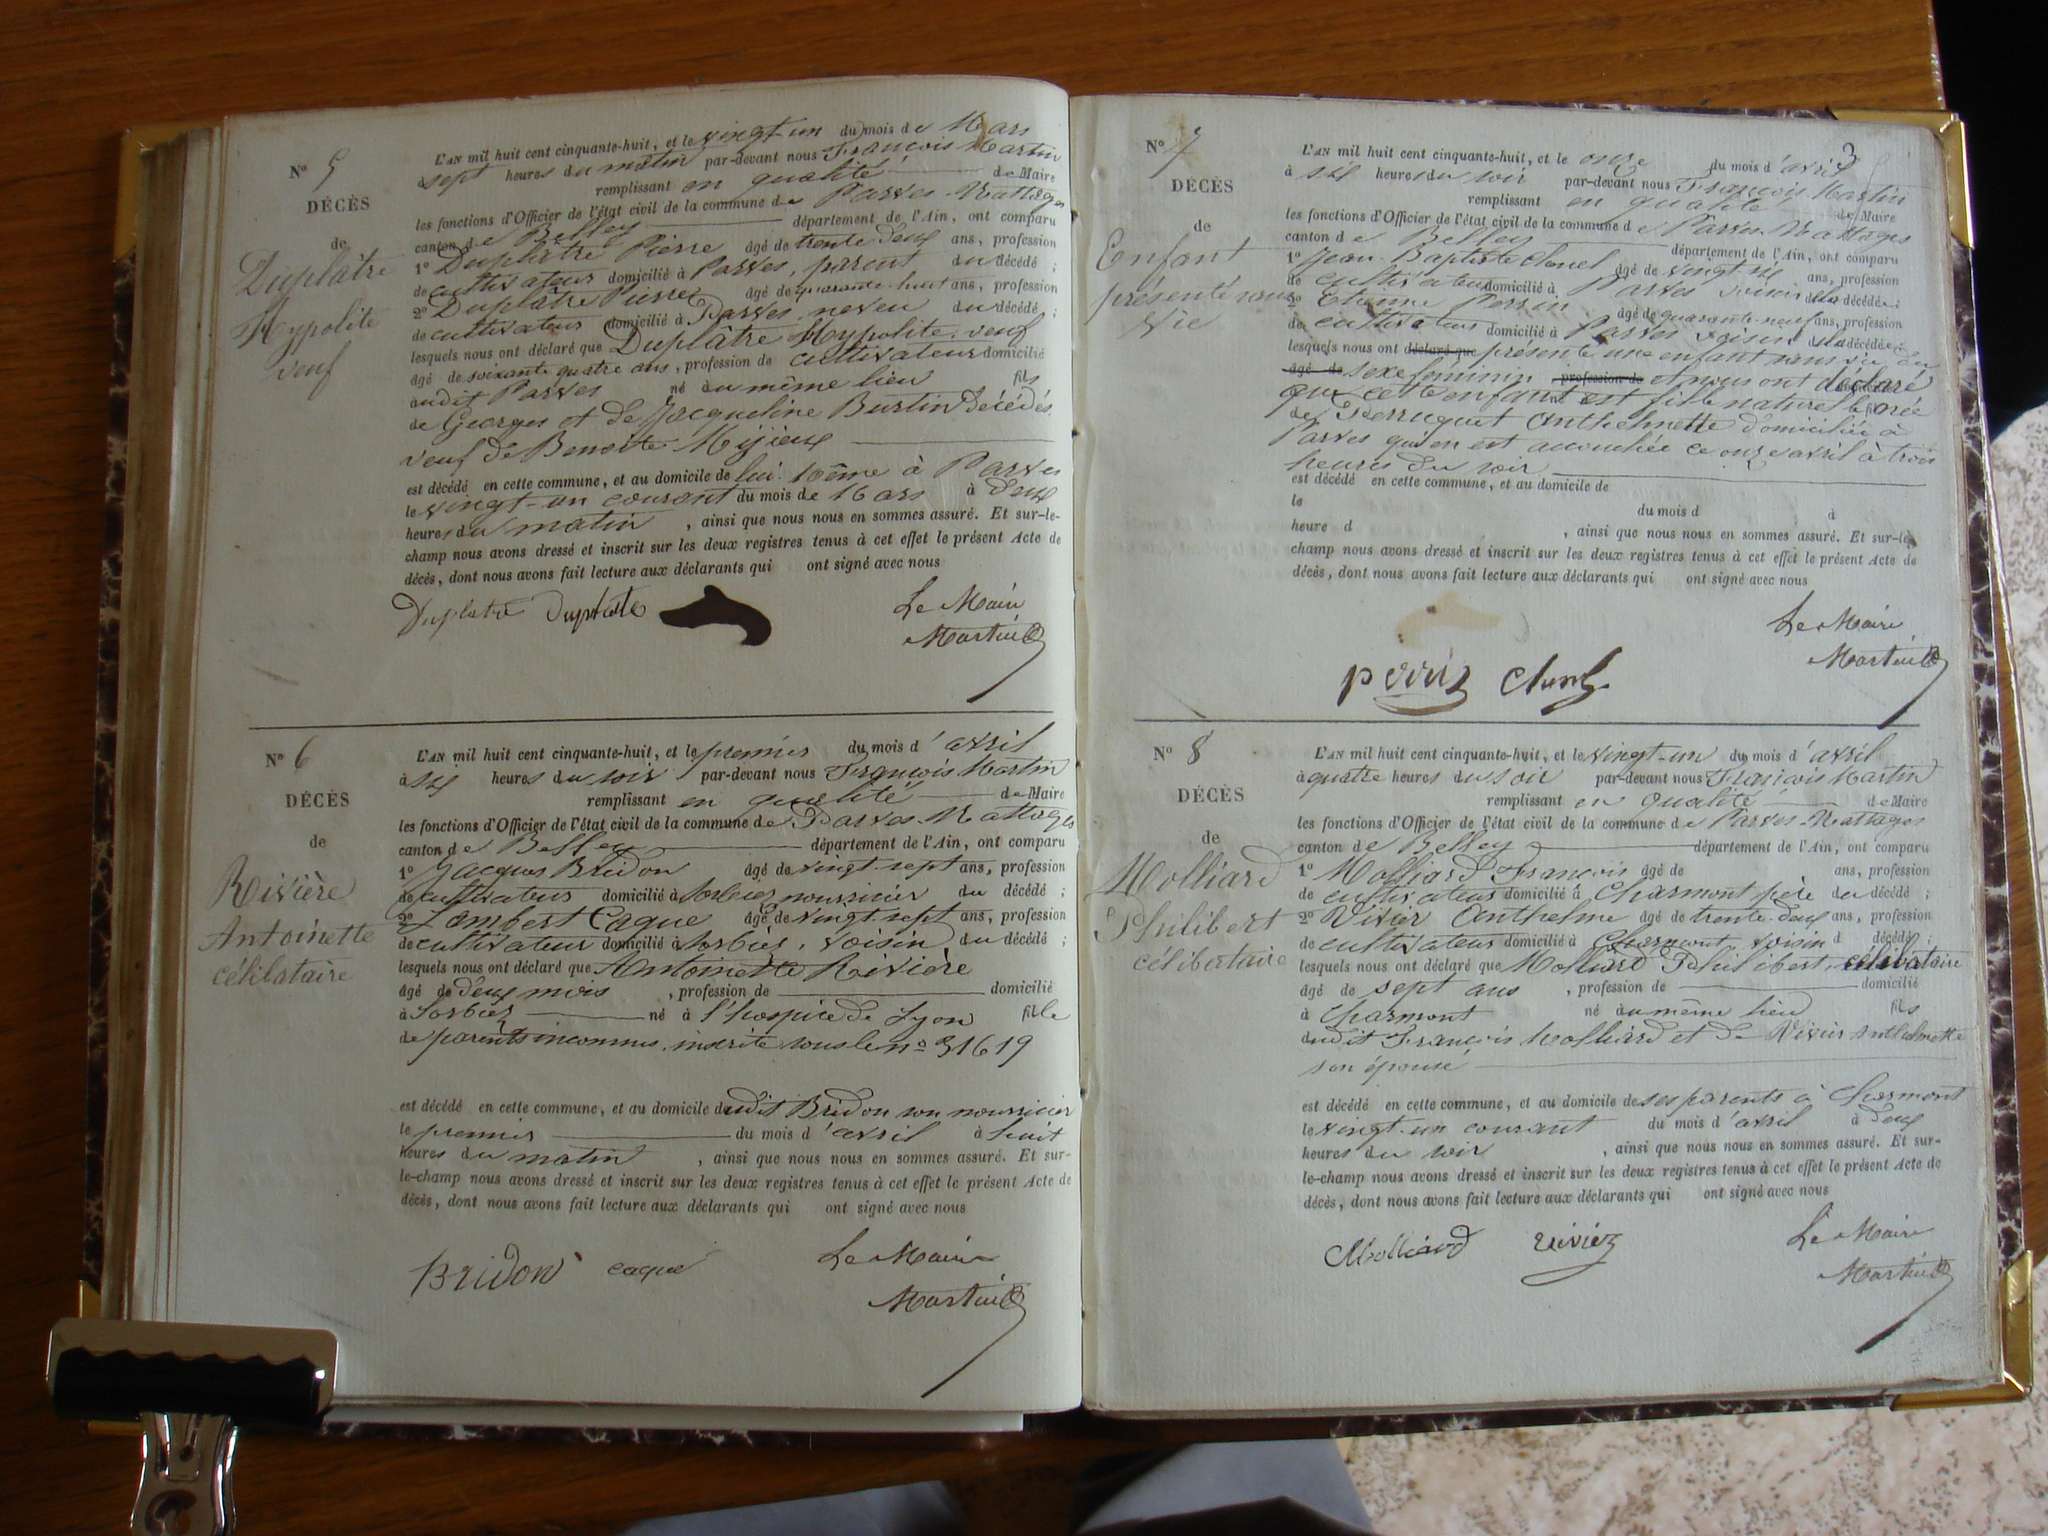 N° 5
DÉCÈS
de
Duplâtre
Hypolite
veuf
L'AN mil huit cent cinquante-huit, et le vingt-un du mois de Mars
à sept heures du matin par-devant nous François Martin
remplissant en qualité de Maire
les fonctions d'Officier de l'état civil de la commune de Parves-Nattages
canton de Belley département de l'Ain, ont comparu
1° Duplâtre Pierre âgé de trente deux ans, profession
de cultivateur domicilié à Parves, parent du décédé ;
2° Duplâtre Pierre âgé de quarante-huit ans, profession
de cultivateur domicilié à Parves neveu du décédé ;
lesquels nous ont déclaré que Duplâtre Hypolite veuf
âgé de soixante quatre ans, profession de cultivateur domicilié
audit Parves né au même lieu fils
de Georges et de Jacqueline Burtin décédés
veuf de Benoite
est décédé en cette commune, et au domicile de lui même à Parves
le vingt-un courant du mois de Mars à deux
heures du matin , ainsi que nous nous en sommes assuré. Et sur-le-
champ nous avons dressé et inscrit sur les deux registres tenus à cet effet le présent Acte de
décès, dont nous avons fait lecture aux déclarants qui ont signé avec nous
Duplatre Duplatre Le Maire
Martin
N° 6
DÉCÈS
de
Rivière
Antoinette
célibataire
L'AN mil huit cent cinquante-huit, et le premier du mois d'avril
à six heures du soir par-devant nous François Martin
remplissant en qualité de Maire
les fonctions d'Officier de l'état civil de la commune de Parves-Nattages
canton de Belley département de l'Ain, ont comparu
1° Jacques Bridon âgé de vingt-sept ans, profession
de cultivateur domicilié à Sorbier nourricier du décédé ;
2° Lambert Caque âgé de vingt-sept ans, profession
de cultivateur domicilié à Sorbier, voisin du décédé ;
lesquels nous ont déclaré que Antoinette Rivière
âgé de deux mois , profession de domicilié
à Sorbier né à l'hospice de Lyon fille
de parents inconnus, inscrite sous le n° 31619
est décédé en cette commune, et au domicile dudit Bridon son nourricier
le premier du mois d'avril à huit
heures du matin , ainsi que nous nous en sommes assuré. Et sur-
le-champ nous avons dressé et inscrit sur les deux registres tenus à cet effet le présent Acte de
décès, dont nous avons fait lecture aux déclarants qui ont signé avec nous
Bridon caque Le Maire
Martin
3
N° 7
DÉCÈS
de
Enfant
présenté sans
vie
L'AN mil huit cent cinquante-huit, et le onze du mois d'avril
à six heures du soir par-devant nous François Martin
remplissant en qualité de Maire
les fonctions d'Officier de l'état civil de la commune de Parves-Nattages
canton de Belley département de l'Ain, ont comparu
1° Jean-Baptiste Clunel âgé de vingt six ans, profession
de cultivateur domicilié à Parves voisin du décédé ;
2° Etienne Perrin âgé de quarante-neuf ans, profession
de cultivateur domicilié à Parves voisin du décédé ;
lesquels nous ont déclaré que présenté une enfant sans vie du
âgé de sexe féminin profession de et nous ont déclaré
que cette enfant est fille naturelle née
de Ferruguet Anthelmette domiciliée à
Parves qui en est accouchée ce onze avril à trois
heures du soir
est décédé en cette commune, et au domicile de
le du mois d à
heure d , ainsi que nous nous en sommes assuré. Et sur-le-
champ nous avons dressé et inscrit sur les deux registres tenus à cet effet le présent Acte de
décès, dont nous avons fait lecture aux déclarants qui ont signé avec nous
Le Maire
Martin
perrin
N° 8
DÉCÈS
de
Molliard
Philibert
célibataire
L'AN mil huit cent cinquante-huit, et le vingt-un du mois d'avril
à quatre heures du soir par-devant nous François Martin
remplissant en qualité de Maire
les fonctions d'Officier de l'état civil de la commune de Parves-Nattages
canton de Belley département de l'Ain, ont comparu
1° Molliard François âgé de ans, profession
de cultivateur domicilié à Charmont père du décédé ;
2° Vivier Anthelme âgé de trente-deux ans, profession
de cultivateur domicilié à Charmont voisin d décédé ;
lesquels nous ont déclaré que Molliard Philibert, célibataire
âgé de sept ans , profession de domicilié
à Charmont né au même lieu fils
dudit François Molliard et de Vivier Anthelmette
son épouse
est décédé en cette commune, et au domicile de ses parents à Charmont
le vingt-un courant du mois d'avril à deux
heures du soir , ainsi que nous nous en sommes assuré. Et sur-
le-champ nous avons dressé et inscrit sur les deux registres tenus à cet effet le présent Acte de
décès, dont nous avons fait lecture aux déclarants qui ont signé avec nous
Molliard vivier Le Maire
Martin